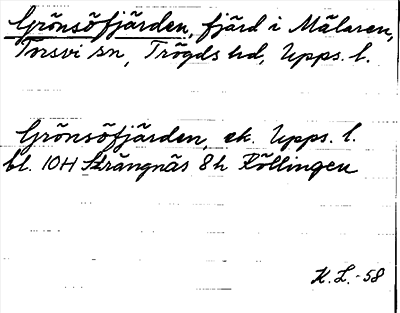 Grönsöfjärden, fjärd i Mälaren,
Torsvi sn, Trögds hd, Upps. l.
Grönsöfjärden, ek. Upps. l.
bl. 10H Strängnäs 8h Köllingen
K. L. -58